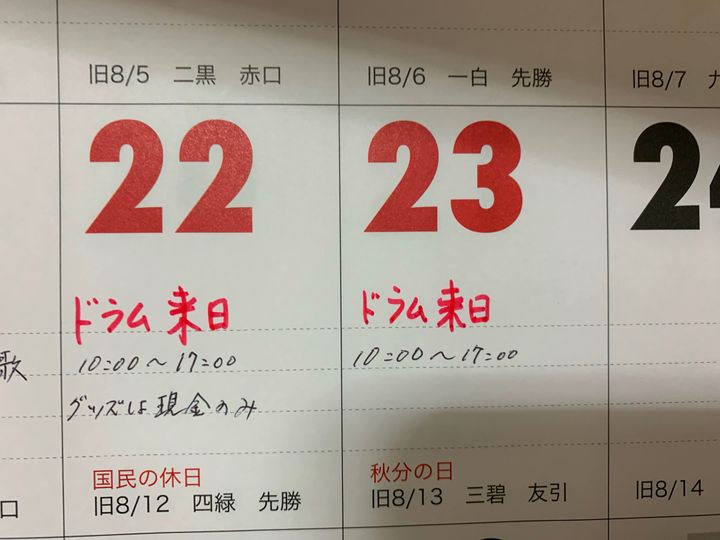 旧8/5 二黒 赤口
旧8/6 一白 先勝
旧8/7
22
23
ドラム来日
10:00〜17:00
グッズは現金のみ
ドラム来日
10:00〜17:00
歌
国民の休日
旧8/12 四緑 先勝
秋分の日
旧8/13 三碧 友引
旧8/14
口